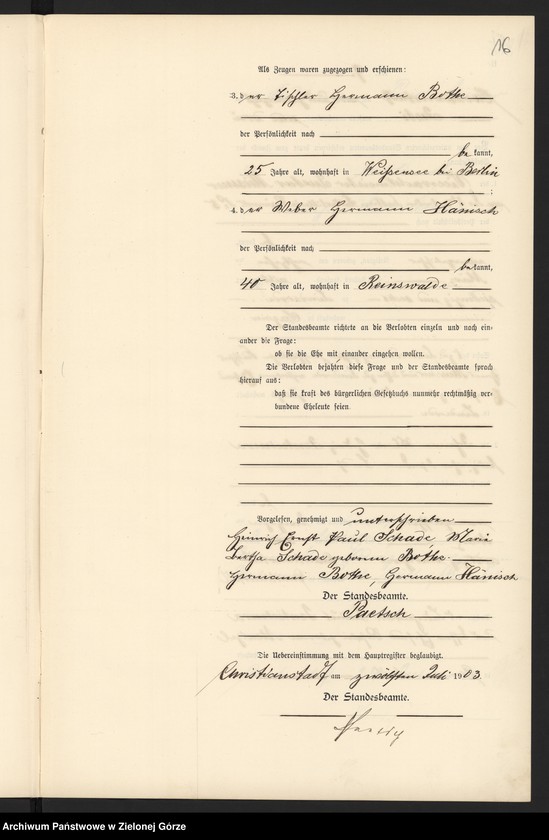 16
Als Zeugen waren zugezogen und erschienen:
3. der Tischler Hermann Bothe
der Persönlichkeit nach
be kannt,
25 Jahre alt, wohnhaft in Weißensee bei Berlin
;
4. der Weber Hermann Hänisch
der Persönlichkeit nach
be kannt,
40 Jahre alt, wohnhaft in Reinswalde
Der Standesbeamte richtete an die Verlobten einzeln und nach ein-
ander die Frage:
ob sie die Ehe mit einander eingehen wollen.
Die Verlobten bejahten diese Frage und der Standesbeamte sprach
hierauf aus:
daß sie kraft des bürgerlichen Gesetzbuchs nunmehr rechtmäßig ver-
bundene Eheleute seien.
Vorgelesen, genehmigt und unterschrieben
Heinrich Ernst Paul Schade, Marie
Bertha Schade geborene Bothe.
Hermann Bothe, Hermann Hänisch
Der Standesbeamte.
Paetsch
Die Uebereinstimmung mit dem Hauptregister beglaubigt.
Christianstadt am zwölften Juli 1903.
Der Standesbeamte.
Archiwum Państwowe w Zielonej Górze